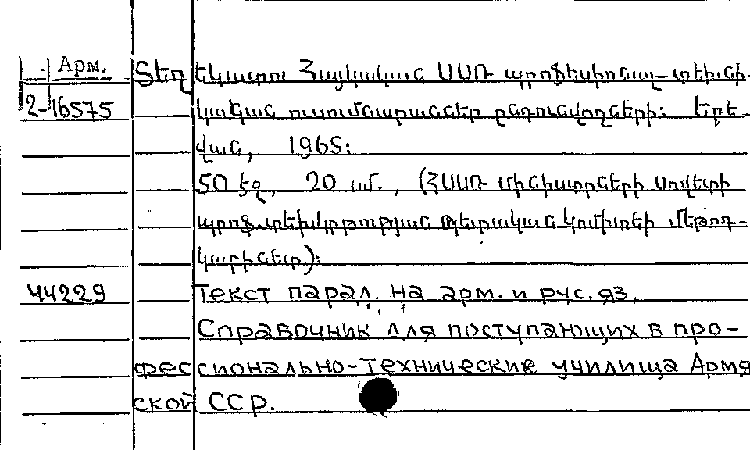 Арм. Տեղեկատու Հայկական ՍՍՌ պրոֆեսիոնալ-տեխնի-
2-16575 կական ուսումնարաններ ընդունվողների: Երե-
վան, 1965:
50 էջ, 20 սմ., (ՀՍՍՌ մինիստրների սովետի
պրոֆ.տեխ.կրթության պետական կոմիտեի մեթոդ-
կաբինետ):
44229 Текст парал. на арм. и рус. яз.
Справочник для поступающих в про-
фессионально-технические училища Армя
ской ССР.